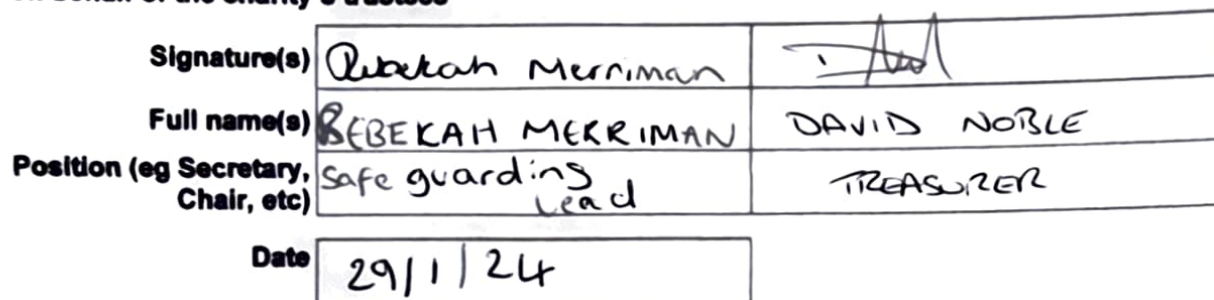 Signature(s) Rebekah Merriman
Full name(s) REBEKAH MERRIMAN DAVID NOBLE
Position (eg Secretary, Chair, etc) Safe guarding Lead TREASURER
Date 29/1/24